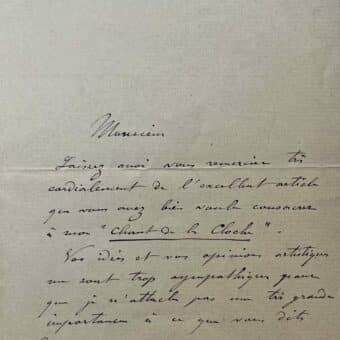 Monsieur
Laissez moi vous remercier très
cordialement de l'excellent article
que vous avez bien voulu consacrer
à mon "Chant de la Cloche".
Vos idées et vos opinions artistiques
me sont trop sympathiques pour
que je n'attache pas une très grande
importance à ce que vous dites